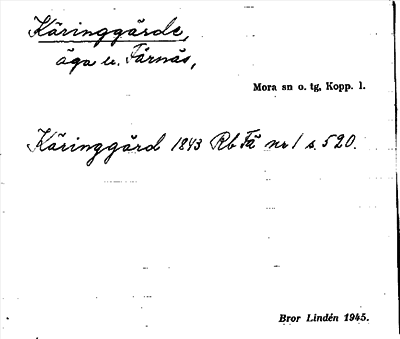 Käringgärde,
äga u. Färnäs,
Mora sn o. tg, Kopp. l.
Käringgård 1843 Rb Fä nr 1 s. 520.
Bror Lindén 1945.